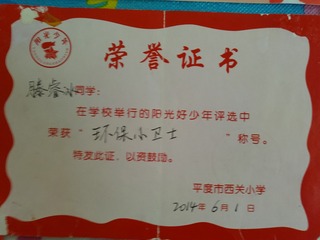 荣誉证书
滕睿冰同学：
在学校举行的阳光好少年评选中
荣获“环保小卫士”称号。
特发此证，以资鼓励。
平度市西关小学
2014年6月1日